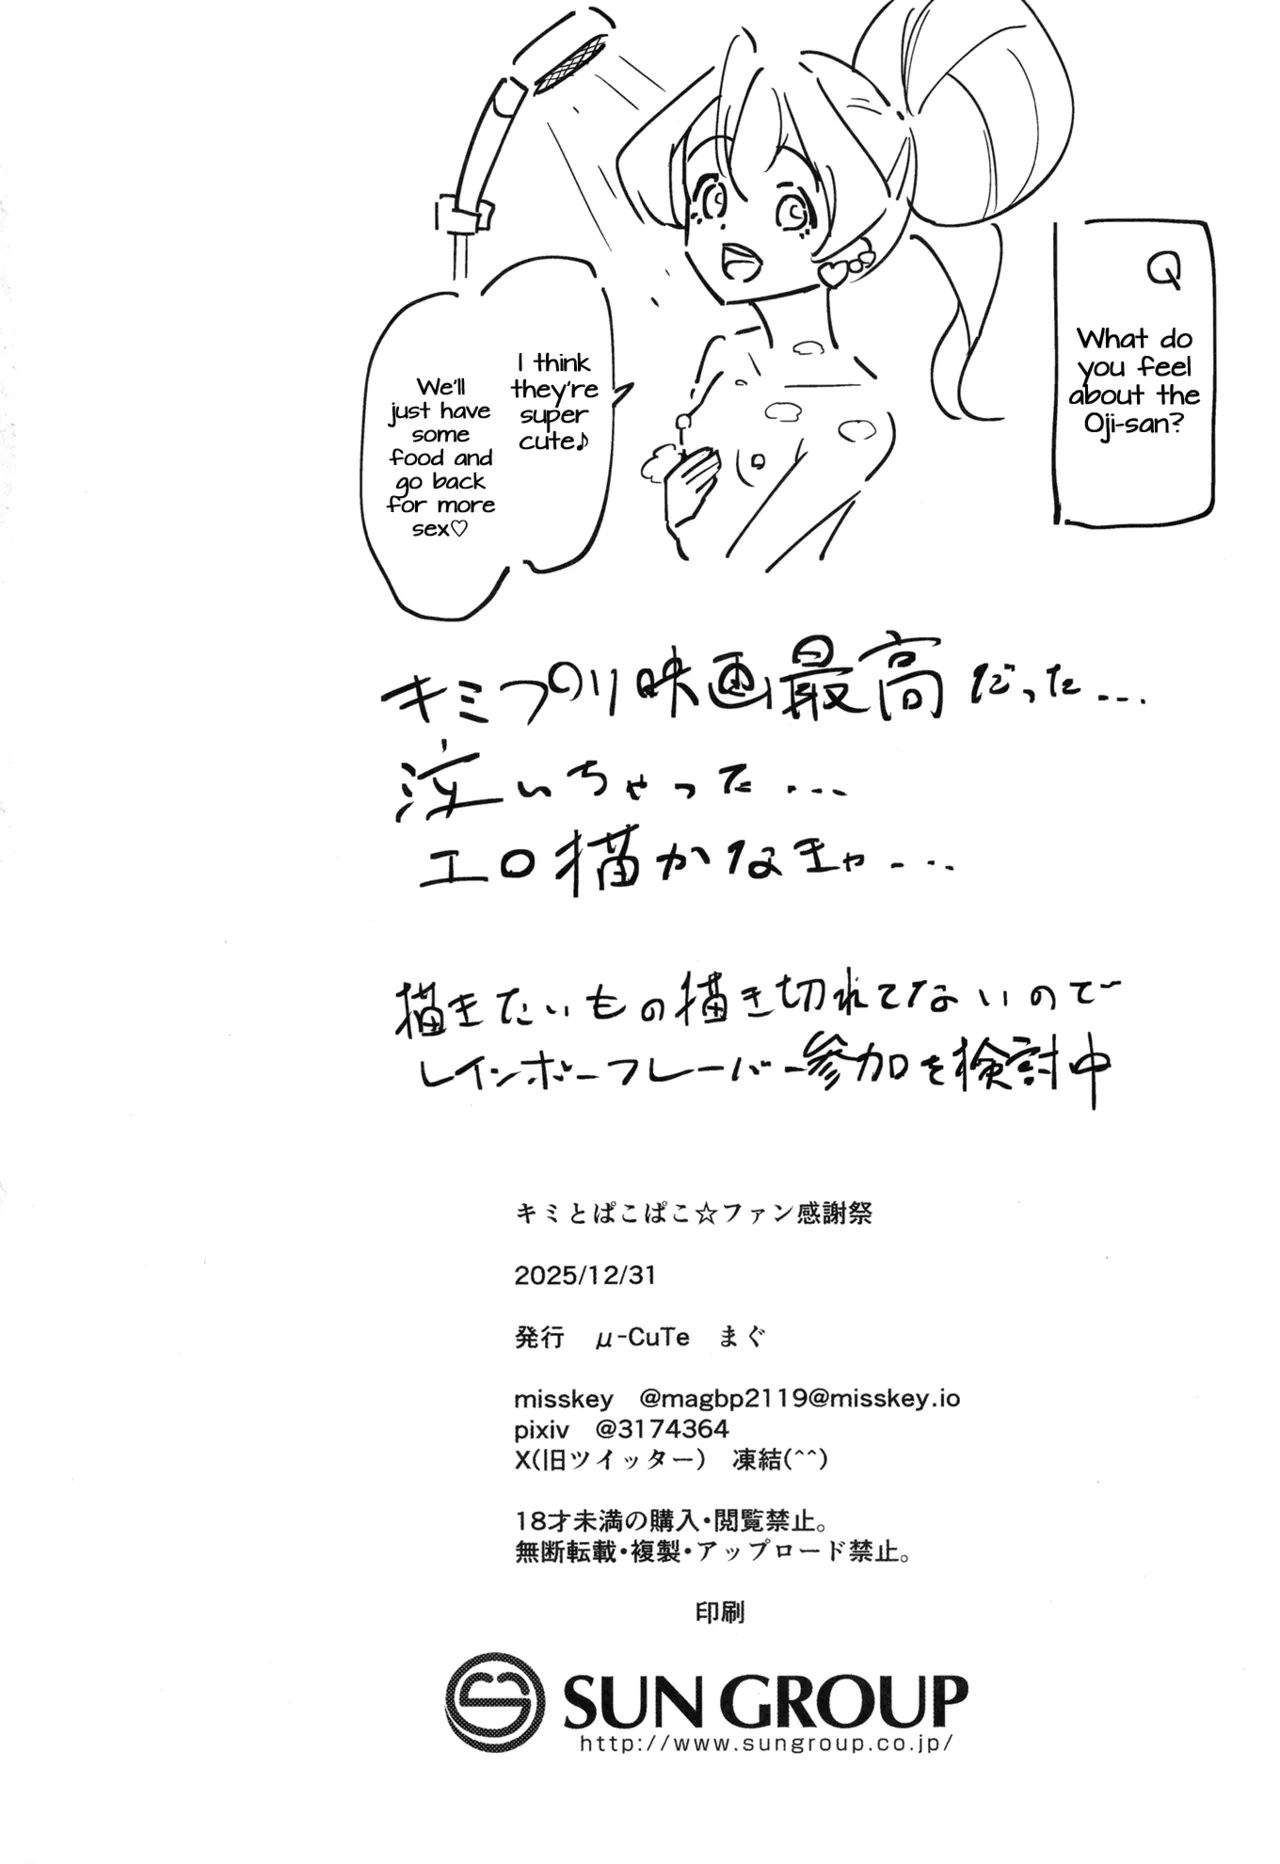 Q
What do
you feel
about the
Oji-san?
I think
they're
super
cute♪
We'll
just have
some
food and
go back
for more
sex♡
キミプリ映画最高だった...
泣いちゃった...
エロ描かなきゃ...
描きたいもの描き切れてないので
レインボーフレーバー参加を検討中
キミとぱこぱこ☆ファン感謝祭
2025/12/31
発行 μ-CuTe まぐ
misskey @magbp2119@misskey.io
pixiv @3174364
X(旧ツイッター) 凍結(^^)
18才未満の購入・閲覧禁止。
無断転載・複製・アップロード禁止。
印刷
SUN GROUP
http://www.sungroup.co.jp/